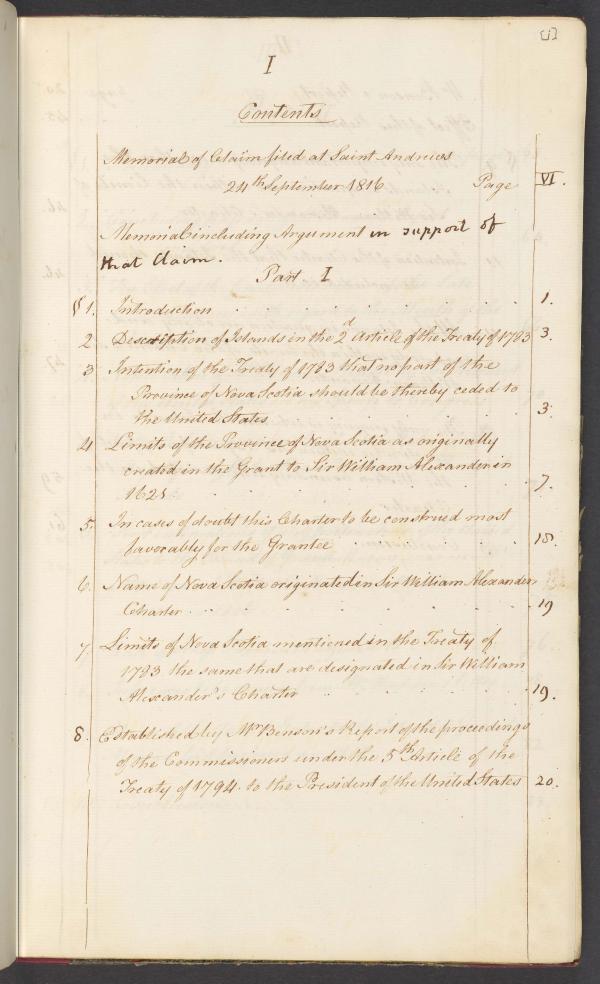 [i]
I
Contents
Memorial of Claim filed at Saint Andrews
24th September 1816 Page VI.
Memorial including Argument in support of
that Claim.
Part I
§ 1. Introduction . . . . . . . . 1.
2 Description of Islands in the 2d Article of the Treaty of 1783 3.
3 Intention of the Treaty of 1783 that no part of the
Province of Nova Scotia should be thereby ceded to
the United States . . . . . . 3.
4 Limits of the Province of Nova Scotia as originally
created in the Grant to Sir William Alexander in
1621 . . . . . . . . 7.
5. In cases of doubt this Charter to be construed most
favorably for the Grantee . . . . . 18.
6. Name of Nova Scotia originated in Sir William Alexander
Charter . . . . . . . . 19
7. Limits of Nova Scotia mentioned in the Treaty of
1783 the same that are designated in Sir William
Alexander's Charter . . . . . . 19.
8. Established by Mr Benson's Report of the proceedings
of the Commissioners under the 5th Article of the
Treaty of 1794. to the President of the United States 20.